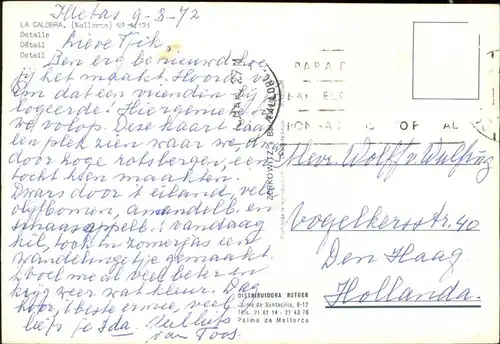 Illetas 9-3-72
LA CALOBRA. (Mallorca) Nº
Detalle
Détail
Detail
Lieve Tjik,
Ben erg benieuwd hoe
jij het maakt. Hoorde v.
Em dat een vriendin bij
logeerde! Hier genieten
we volop. Deze kaart laat
een plek zien waar we, dwars
door hoge rotsbergen, een
tocht heen maakten.
Dwars door 't eiland, vele
olijfbomen, amandelb. en
sinaasappelb. Vandaag
stil, toch in zomerjas een
wandelingetje gemaakt.
Voel me al veel beter en
krijg weer wat kleur. Dag
hoor, 't beste ermee, veel
liefs je Ida. Veel liefs
van Toos.
PARA D
HONGA OP AL
ZERKOWITZ
Heer Wolff v Wülfing
Vogelkersstr. 40
Den Haag
Hollanda.
DISTRIBUIDORA ROTGER
Jaime de Santacilia, 8-12
Tlfs. 21 61 14 - 21 43 76
Palma de Mallorca